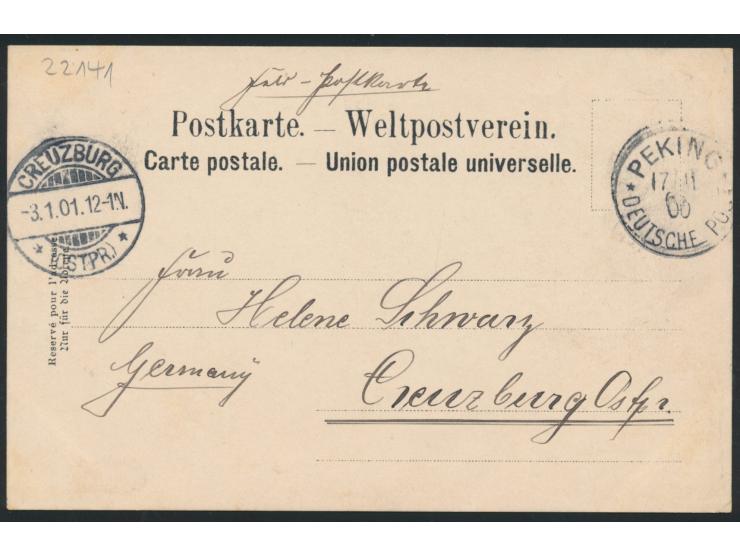 22141
Feld-Postkarte
Postkarte. — Weltpostverein.
Carte postale. — Union postale universelle.
CREUZBURG
-3.1.01.12-1N.
* (OSTPR.) *
* PEKING
17/11
00
DEUTSCHE POST
Reservé pour l'adresse
Nur für die Adresse
Frau
Helene Schwarz
Germany
Creuzburg Ostpr.